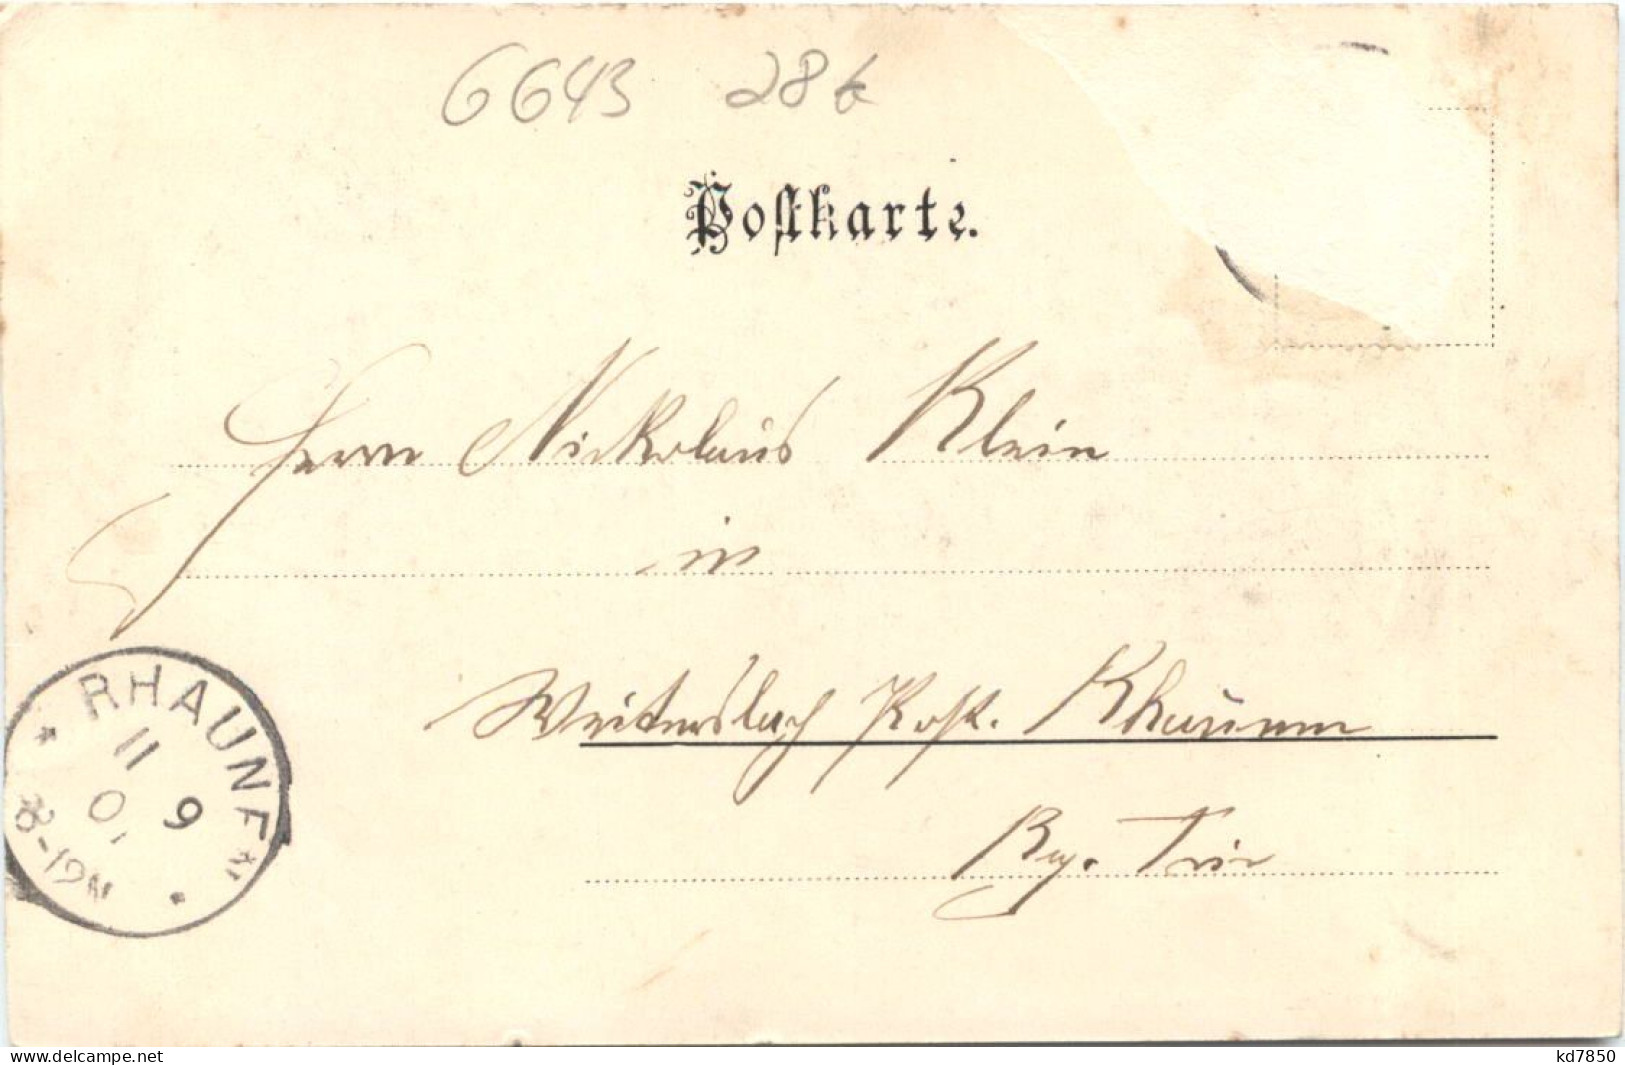 6643 28 €
Postkarte.
Herrn Nickolaus Klein
in
Weitersbach Post. Rhaunen
Bez. Trier
RHAUNEN
11 9
01
8-12N
www.delcampe.net
kd7850